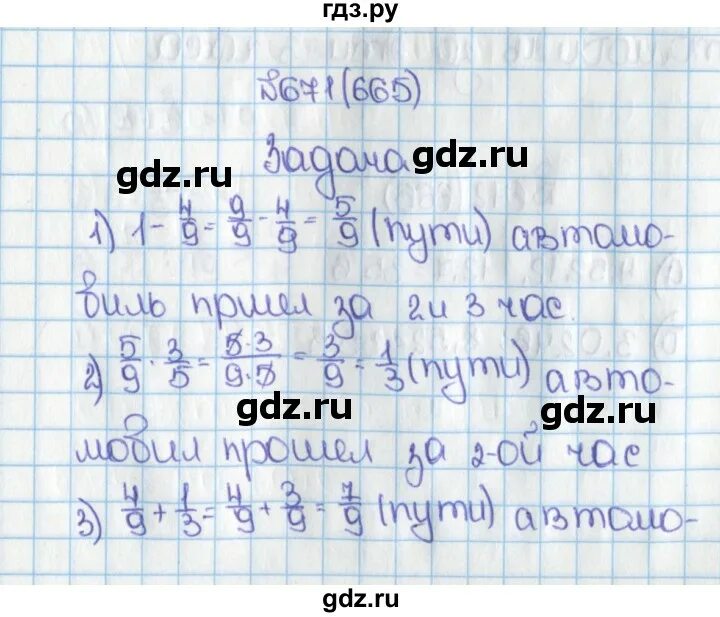 гдз.ру
№671(665)
Задача gdz.ru
gdz.ru
1) 1 - 4/9 = 9/9 - 4/9 = 5/9 (пути) автомо-
биль пршел за 2 и 3 час.
2) 5/9 · 3/5 = 5·3/9·5 = 3/9 = 1/3 (пути) авто-
gdz.ru gdz.ru
мобил прошел за 2-ой час
3) 4/9 + 1/3 = 4/9 + 3/9 = 7/9 (пути) автомо-
gdz.ru